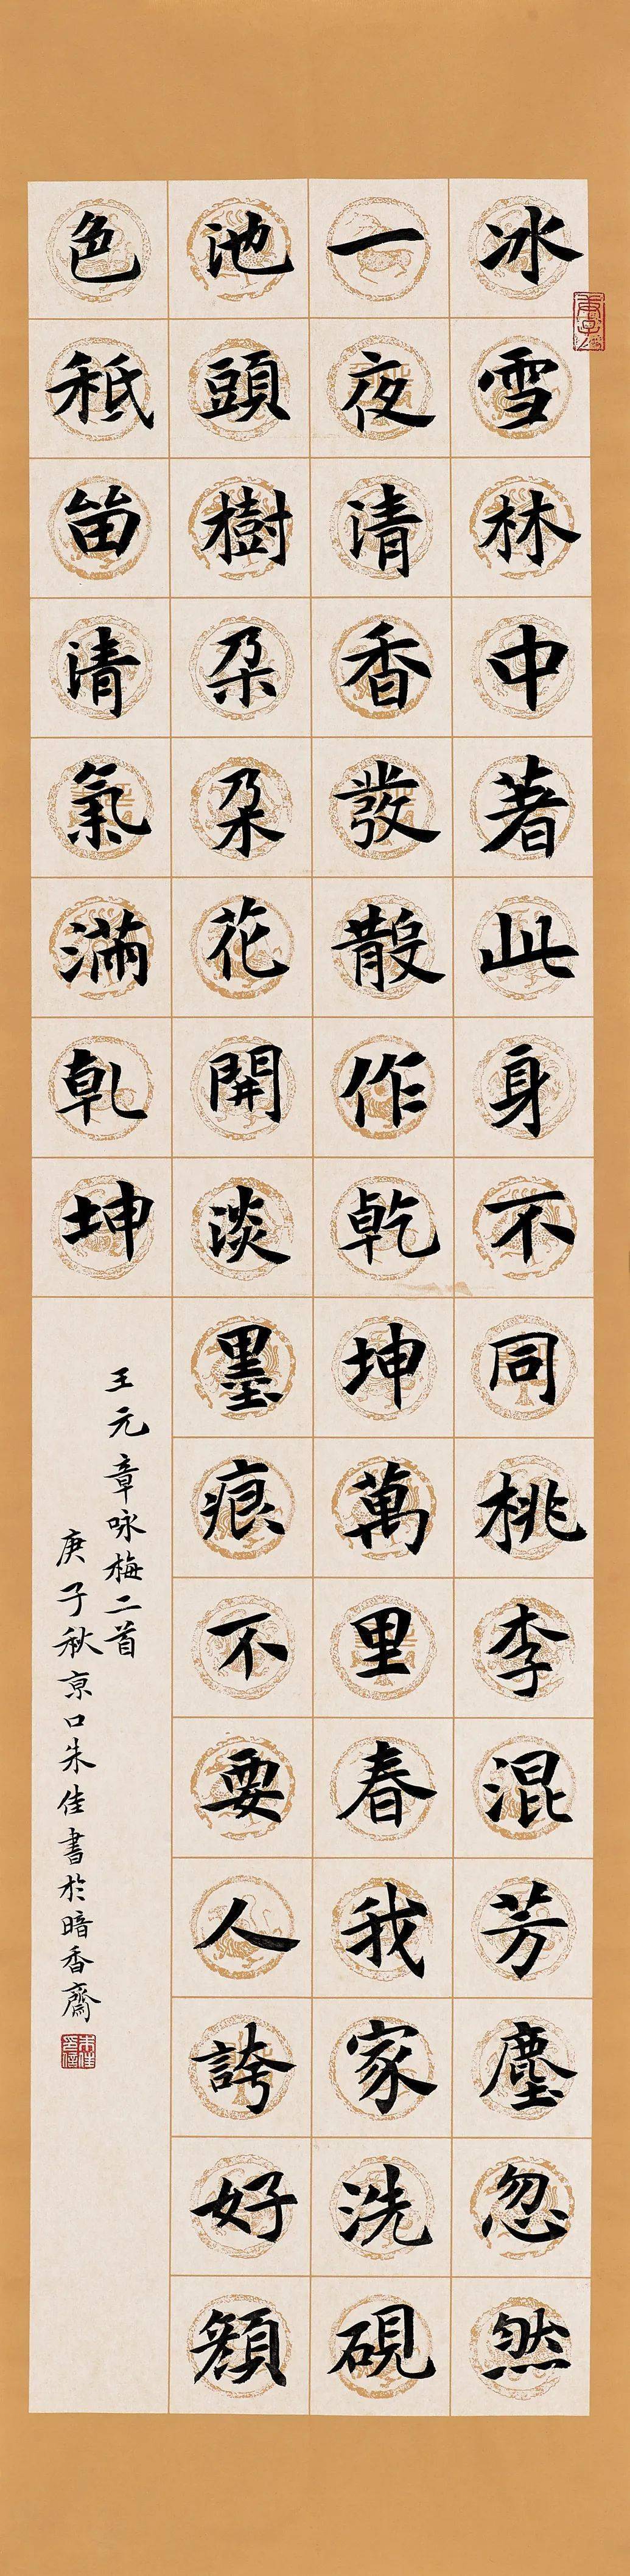 庚子
冰雪林中著此身不同桃李混芳塵忽然
一夜清香發散作乾坤萬里春我家洗硯
池頭樹朵朵花開淡墨痕不要人誇好顏
色秖留清氣滿乾坤
王元章咏梅二首
庚子秋京口朱佳書於暗香齋
朱佳印信